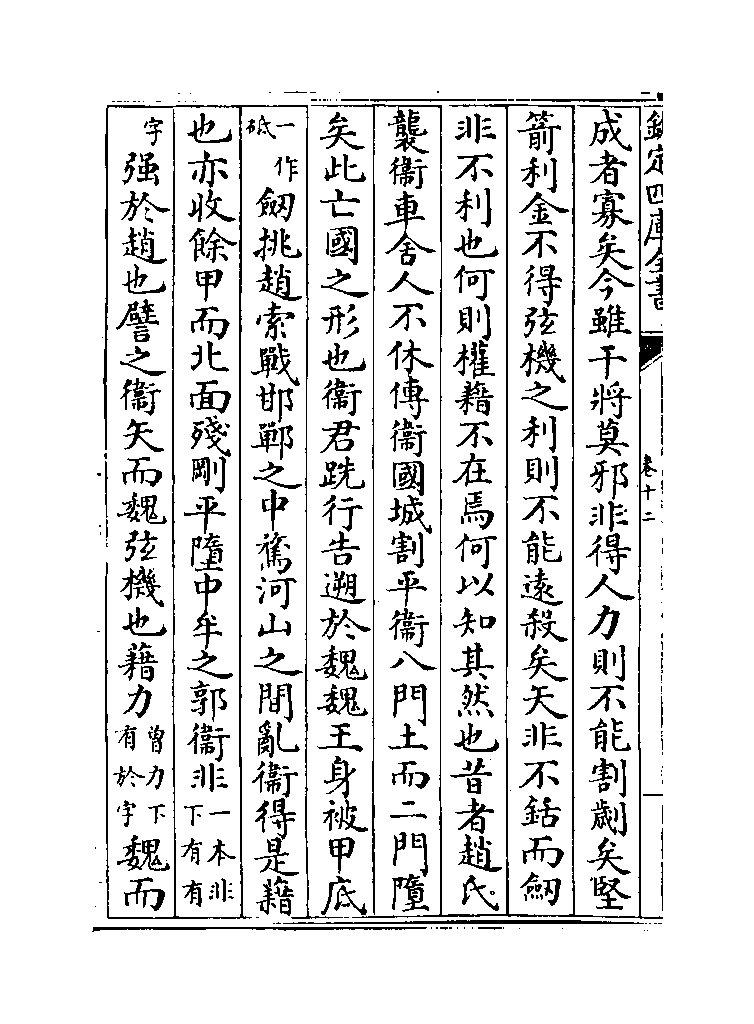 欽定四庫全書
卷十二
成者寡矣今雖干將莫邪非得人力則不能割劌矣堅
箭利金不得弦機之利則不能遠殺矣矢非不銛而劒
非不利也何則權藉不在焉何以知其然也昔者趙氏
襲衞車舍人不休傅衞國城割平衞八門土而二門墮
矣此亡國之形也衞君跣行告遡於魏魏王身被甲底
一作砥劒挑趙索戰邯鄲之中騖河山之間亂衞得是藉
也亦收餘甲而北面殘剛平墮中牟之郭衞非一本非下有有
字强於趙也譬之衞矢而魏弦機也藉力曾力下有於字魏而